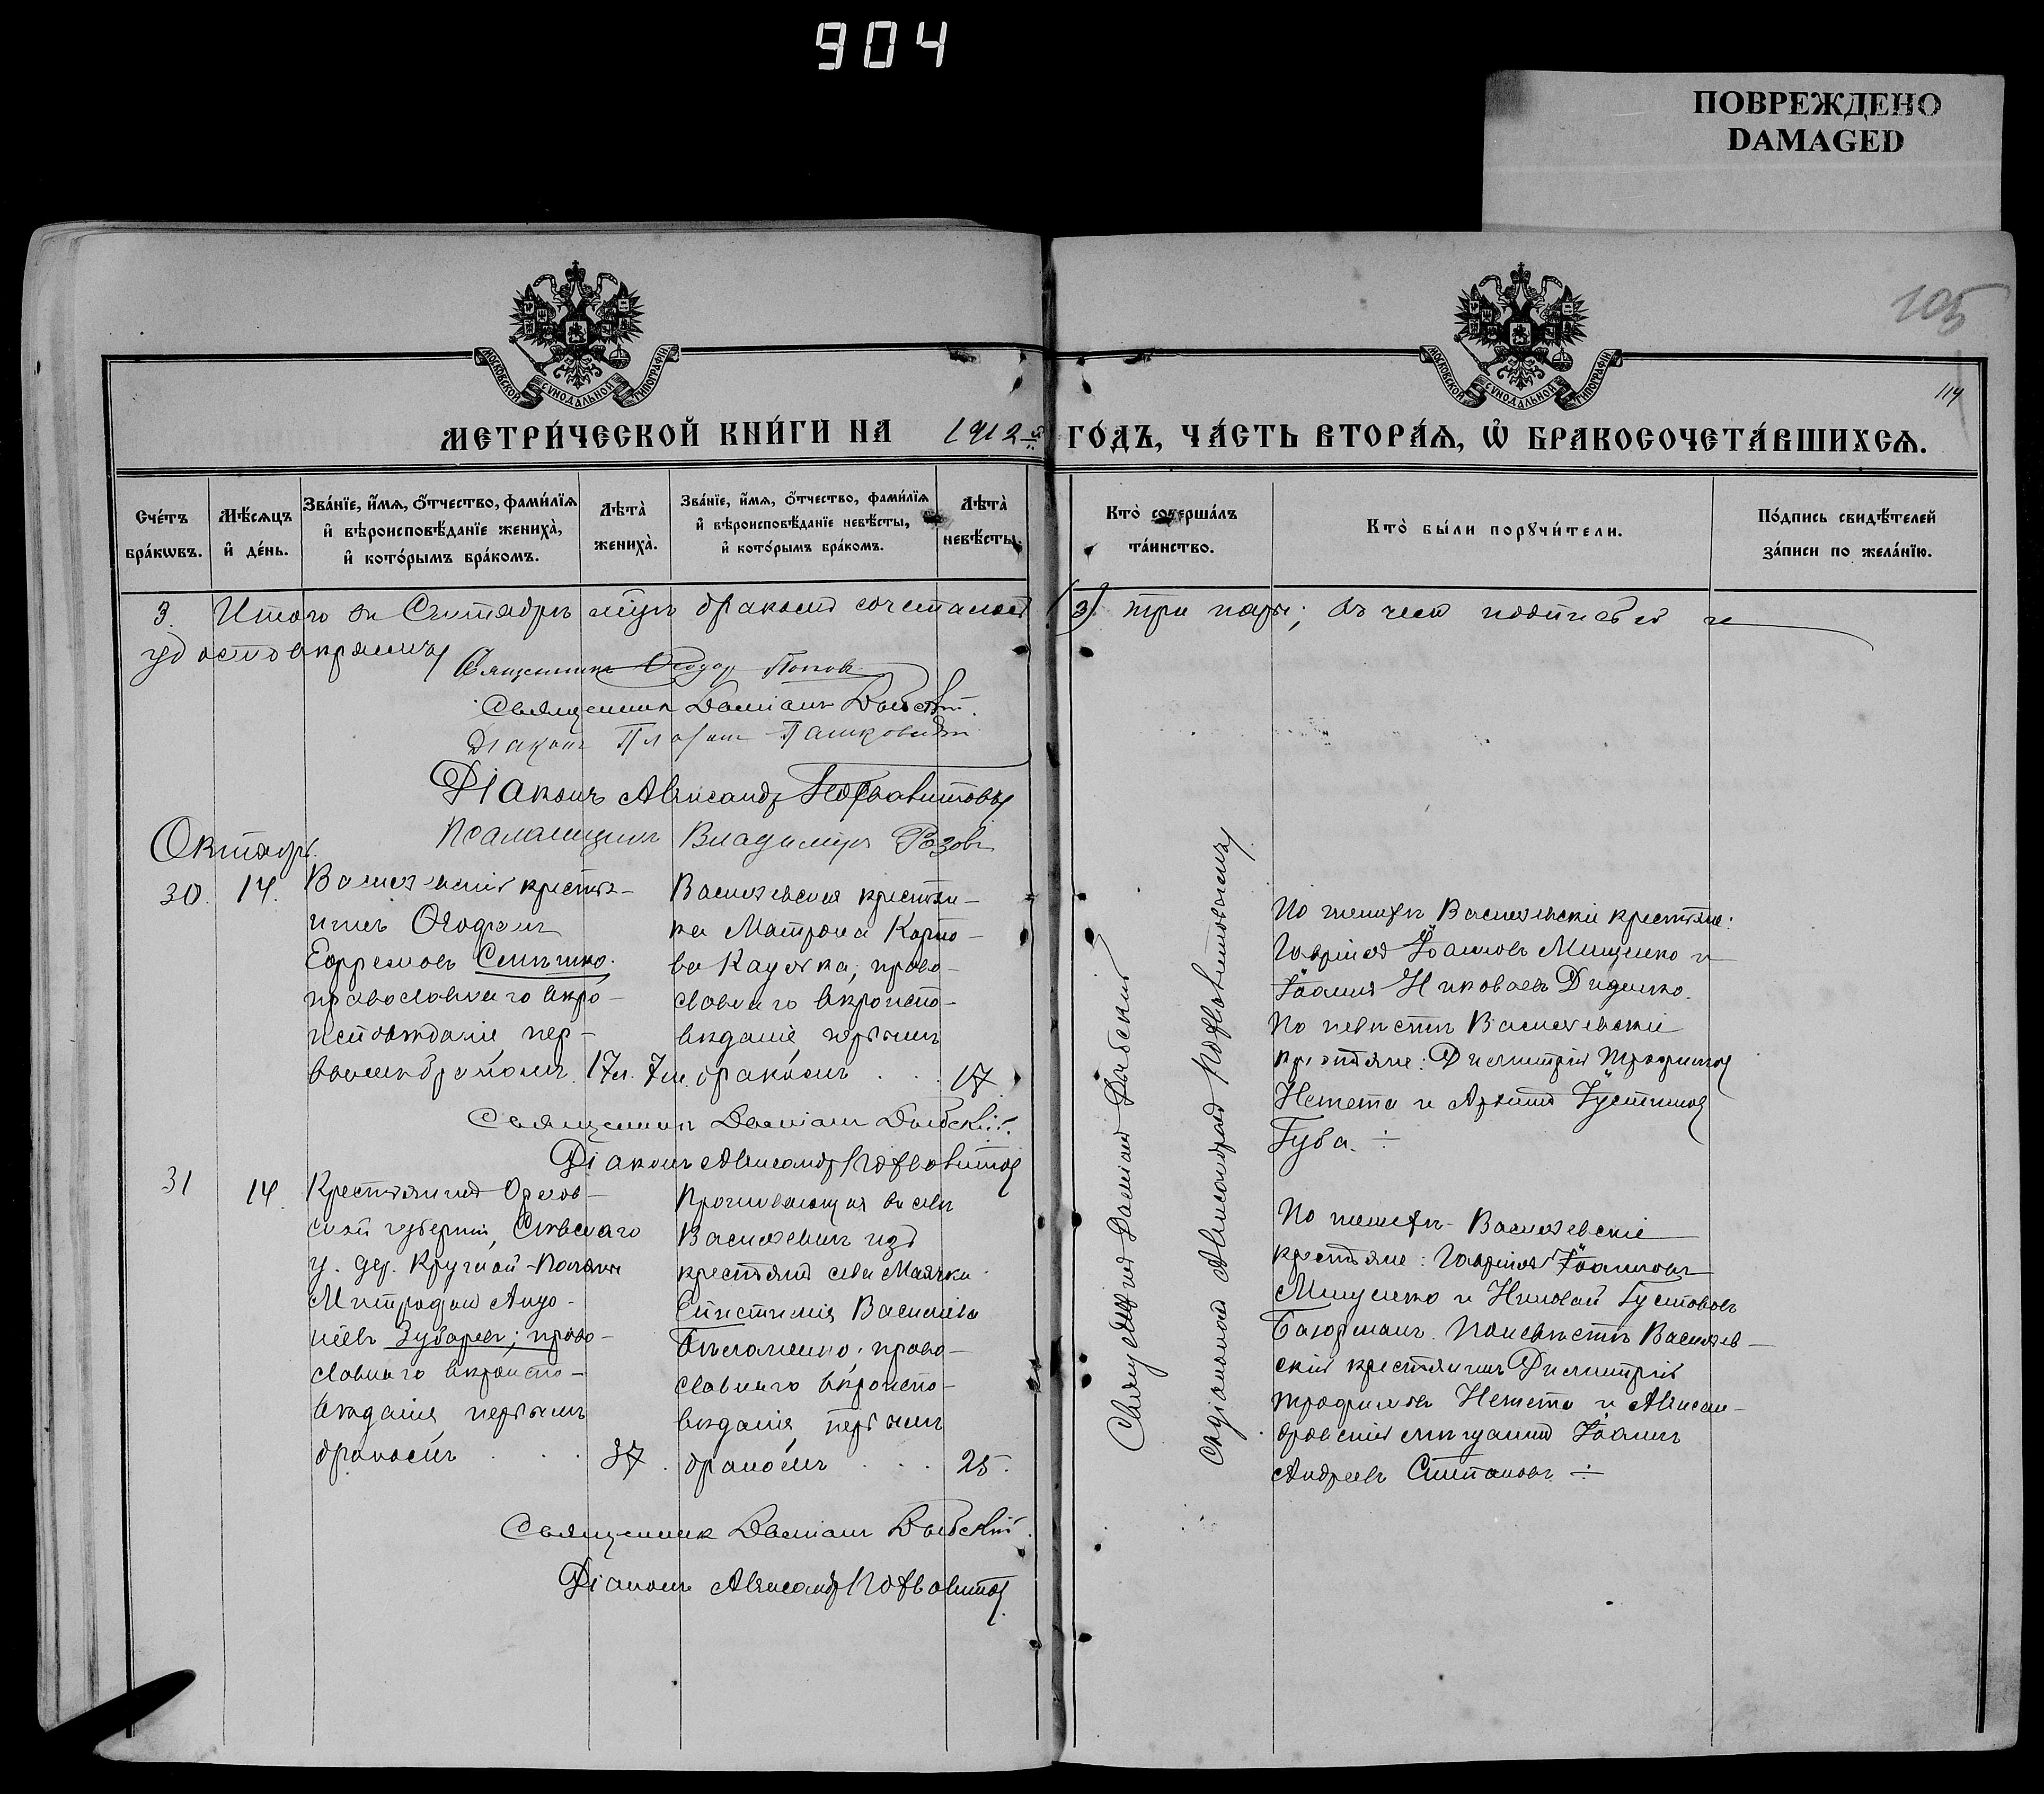 904
ПОВРЕЖДЕНО
DAMAGED
105
114
МОСКОВСКОЙ СѴНОДАЛЬНОЙ ТИПОГРАФІИ
МОСКОВСКОЙ СѴНОДАЛЬНОЙ ТИПОГРАФІИ
МЕТРИ́ЧЕСКОЙ КНИ́ГИ НА 1912 й ГО́ДЪ, ЧА́СТЬ ВТОРА́Ѧ, Ѽ БРАКОСОЧЕТА́ВШИХСѦ.
Сче́тъ бра́кѡвъ.
Мѣ́сѧцъ и҆ де́нь.
Зва́нїе, и҆́мѧ, ѻ҆́тчество, фами́лїѧ и҆ вѣроисповѣ́данїе жениха̀, и҆ кото́рымъ бра́комъ.
Лѣта̀ жениха̀.
Зва́нїе, и҆́мѧ, ѻ҆́тчество, фами́лїѧ и҆ вѣроисповѣ́данїе невѣ́сты, и҆ кото́рымъ бра́комъ.
Лѣта̀ невѣ́сты.
Кто̀ соверша́лъ та́инство.
Кто̀ бы́ли порꙋчи́тели.
По́дпись свидѣ́телей за́писи по жела́нїю.
3. Итого въ Сентябрѣ мѣс. бракомъ сочеталось (3) три пары; въ чемъ подписью и
удостовѣряемъ
Священникъ Ѳеодор Попов
Священник Даміанъ Дыбскій.
Діаконъ Платонъ Пашковскій
Діаконъ Александръ Пофталитовъ
Псаломщикъ Владиміръ Розовъ
Октябрь.
30. 14.
Васильевскій крестья-
нинъ
Ефремовъ
православнаго вѣро-
исповѣданія пер-
вымъ бракомъ. 17 л. 7 м.
Васильевская крестьян-
ка Матрона Карпо-
ва, право-
славнаго вѣроиспо-
вѣданія, первымъ
бракомъ . . . 17
Священник Даміанъ Дыбскій.
Діаконъ Александръ
По женихѣ Васильевскіе крестьяне:
Гавріилъ Іоанновъ Мищенко и
Іоаннъ Николаевъ Диденко.
По невѣстѣ Васильевскіе
крестьяне: Димитрій Трофимовъ
Нетета и Архиппъ Іустиновъ
Губа. ÷
31 14.
Крестьянинъ Орлов-
ской губерніи, Сѣвскаго
у. дер. Круглой-Поляны
Митрофанъ Андо-
нѣевъ Зубаревъ; право-
славнаго вѣроиспо-
вѣданія первымъ
бракомъ . . . 37.
Проживающая въ селѣ
Васильевкѣ изъ
крестьянъ села Маячки
Василіева
право-
славнаго вѣроиспо-
вѣданія, первымъ
бракомъ . . . 25.
По женихѣ - Васильевскіе
крестьяне: Гавріилъ Іоанновъ
Мищенко и Николай Густавовъ
По невѣстѣ Васильев-
скій крестьянинъ Димитрій
Трофимовъ Нетета и Алексан-
дровскій мѣщанинъ Іоаннъ
Андреевъ Степановъ ÷
Священникъ Даміанъ Дыбскій
съ діакономъ Александромъ
Священник Даміанъ Дыбскій.
Діаконъ Александръ